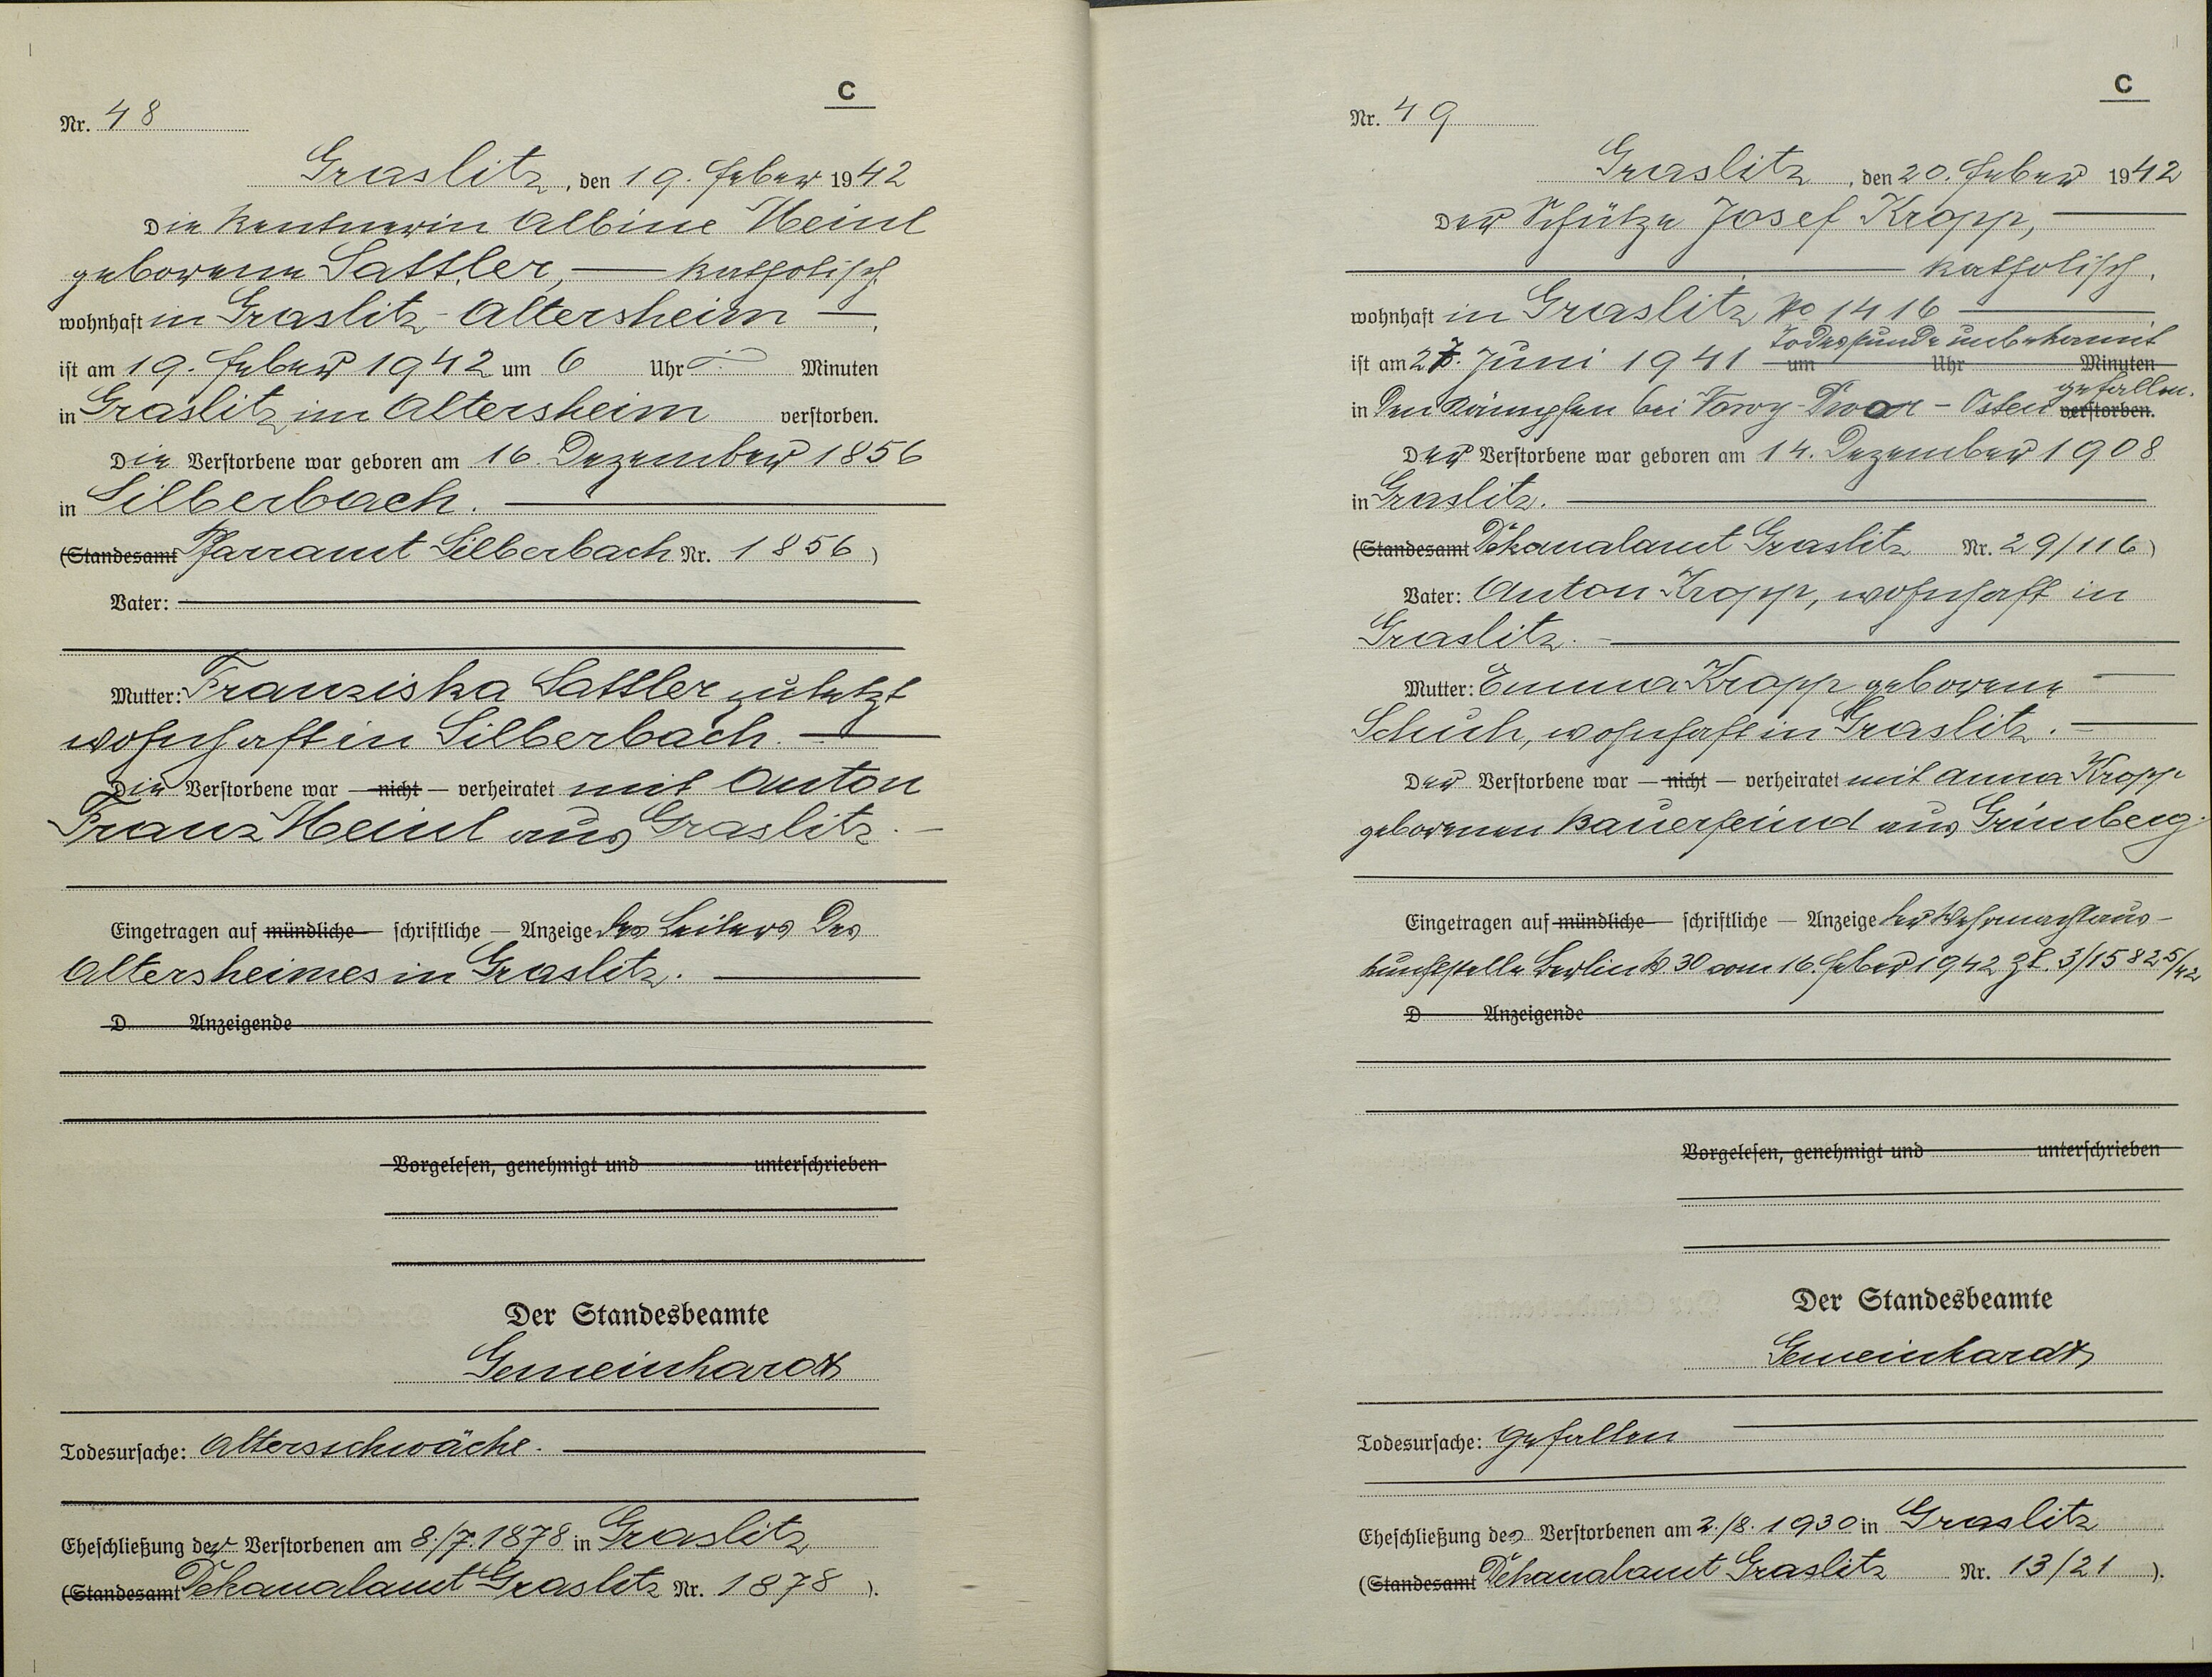 C
Nr. 48
Graslitz, den 19. Feber 1942
Die Rentnerin Albine Heinl
geborene Sattler, — katholisch
wohnhaft in Graslitz - Altersheim —.
ist am 19. Feber 1942 um 6 Uhr — Minuten
in Graslitz im Altersheim verstorben.
Die Verstorbene war geboren am 16. Dezember 1856
in Silberbach.
(Standesamt Pfarramt Silberbach Nr. 1856)
Vater:
Mutter: Franziska Sattler zuletzt
wohnhaft in Silberbach.
Die Verstorbene war — nicht — verheiratet mit Anton
Franz Heinl aus Graslitz.
Eingetragen auf mündliche — schriftliche — Anzeige des Leiters des
Altersheimes in Graslitz.
D Anzeigende
Vorgelesen, genehmigt und unterschrieben
Der Standesbeamte
Gemeinhardt
Todesursache: Altersschwäche.
Eheschließung der Verstorbenen am 8./7. 1878 in Graslitz
(Standesamt Dekanalamt Graslitz Nr. 1878).
C
Nr. 49
Graslitz, den 20. Feber 1942
Der Schütze Josef Kropp,
katholisch.
wohnhaft in Graslitz No 1416
Todesstunde unbekannt
ist am 27. Juni 1941 um Uhr Minuten
gefallen.
in den Kämpfen bei Dwor - Osten verstorben.
Der Verstorbene war geboren am 14. Dezember 1908
in Graslitz.
(Standesamt Dekanalamt Graslitz Nr. 29/116)
Vater: Anton Kropp, wohnhaft in
Graslitz.
Mutter: Emma Kropp geborene
Schuh, wohnhaft in Graslitz.
Der Verstorbene war — nicht — verheiratet mit Anna Kropp
geborenen Bauerfeind aus Grünberg.
Eingetragen auf mündliche — schriftliche — Anzeige der Wehrmachtaus-
kunftstelle Berlin W 30 vom 16. Feber 1942 Zl. 3/15825/42
D Anzeigende
Vorgelesen, genehmigt und unterschrieben
Der Standesbeamte
Gemeinhardt
Todesursache: gefallen
Eheschließung des Verstorbenen am 2./8. 1930 in Graslitz
(Standesamt Dekanalamt Graslitz Nr. 13/21).